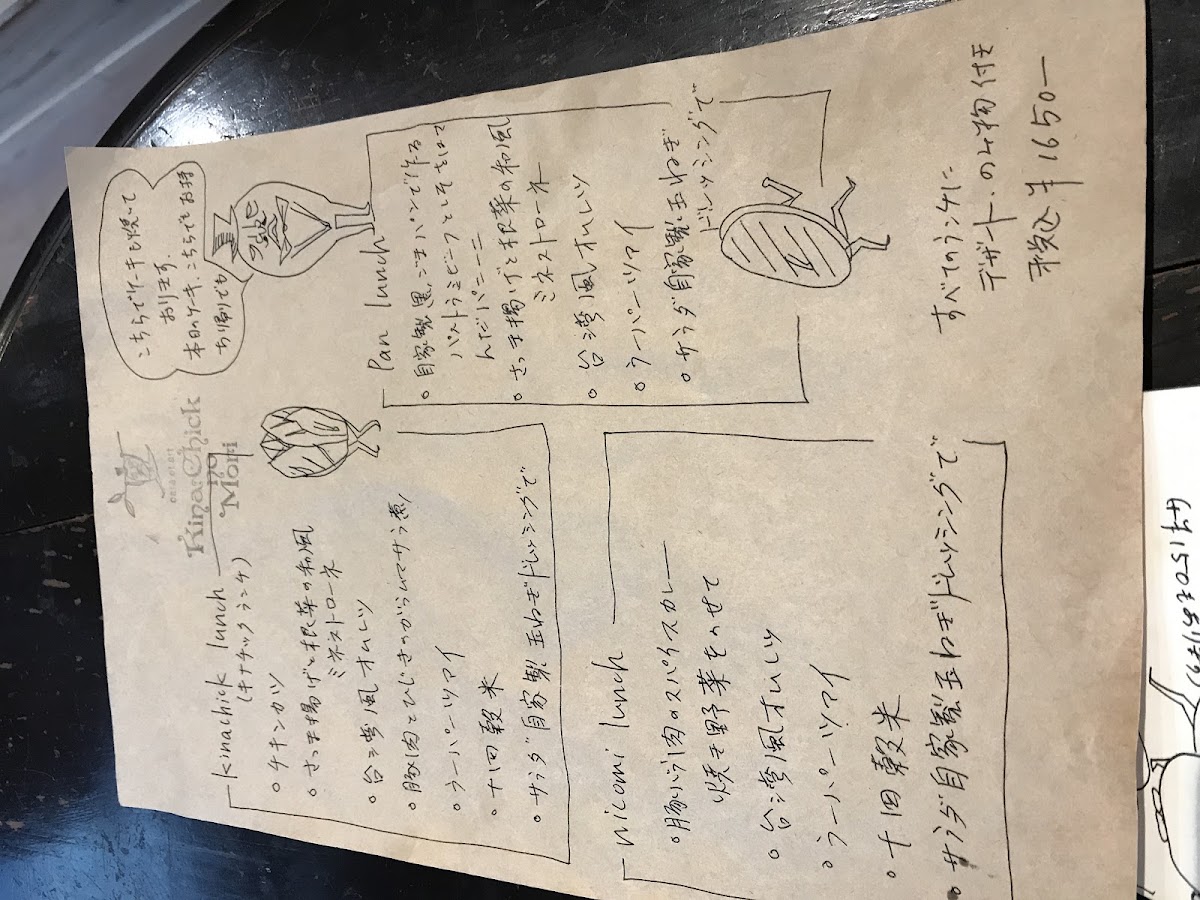 Kina Chick
no
Mori
こちらでケーキも焼いて
おります。
本日のケーキ、こちらでお持
ち帰りでも
kinachick lunch
(キナチックランチ)
○チキンカツ
○さつま揚げと根菜の和風
ミネストローネ
○台湾風オムレツ
○豚肉とひじきのがらムマサラ煮
○ラーパーツァイ
○十四穀米
○サラダ自家製玉ねぎドレッシングで
Pan lunch
○自家製黒ごまパンで作る
パストラミビーフとレタスはさ
んだパニーニ
○さつま揚げと根菜の和風
ミネストローネ
○台湾風オムレツ
○ラーパーツァイ
○サラダ自家製玉ねぎ
ドレッシングで
nicomi lunch
○豚ひき肉のスパイスカレー
焼き野菜をのせて
○台湾風オムレツ
○ラーパーツァイ
○十四穀米
○サラダ自家製玉ねぎドレッシングで
すべてのランチに
デザート、のみ物付き
税込¥1650ー